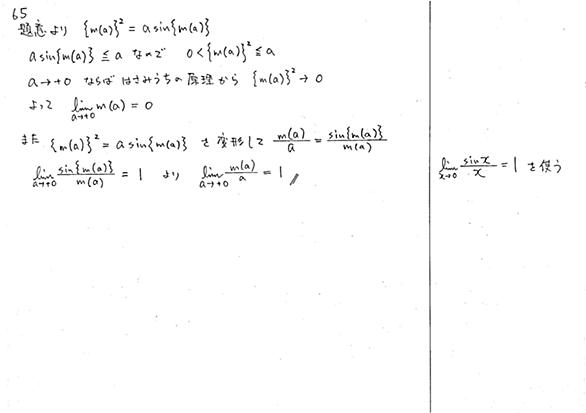 65
題意より {m(a)}² = a sin{m(a)}
a sin{m(a)} ≦ a なので 0 < {m(a)}² ≦ a
a→+0 ならば はさみうちの原理から {m(a)}² → 0
よって lim_{a→+0} m(a) = 0
また {m(a)}² = a sin{m(a)} を変形して m(a)/a = sin{m(a)}/m(a)
lim_{a→+0} sin{m(a)}/m(a) = 1 より lim_{a→+0} m(a)/a = 1 //
lim_{x→0} sinx/x = 1 を使う